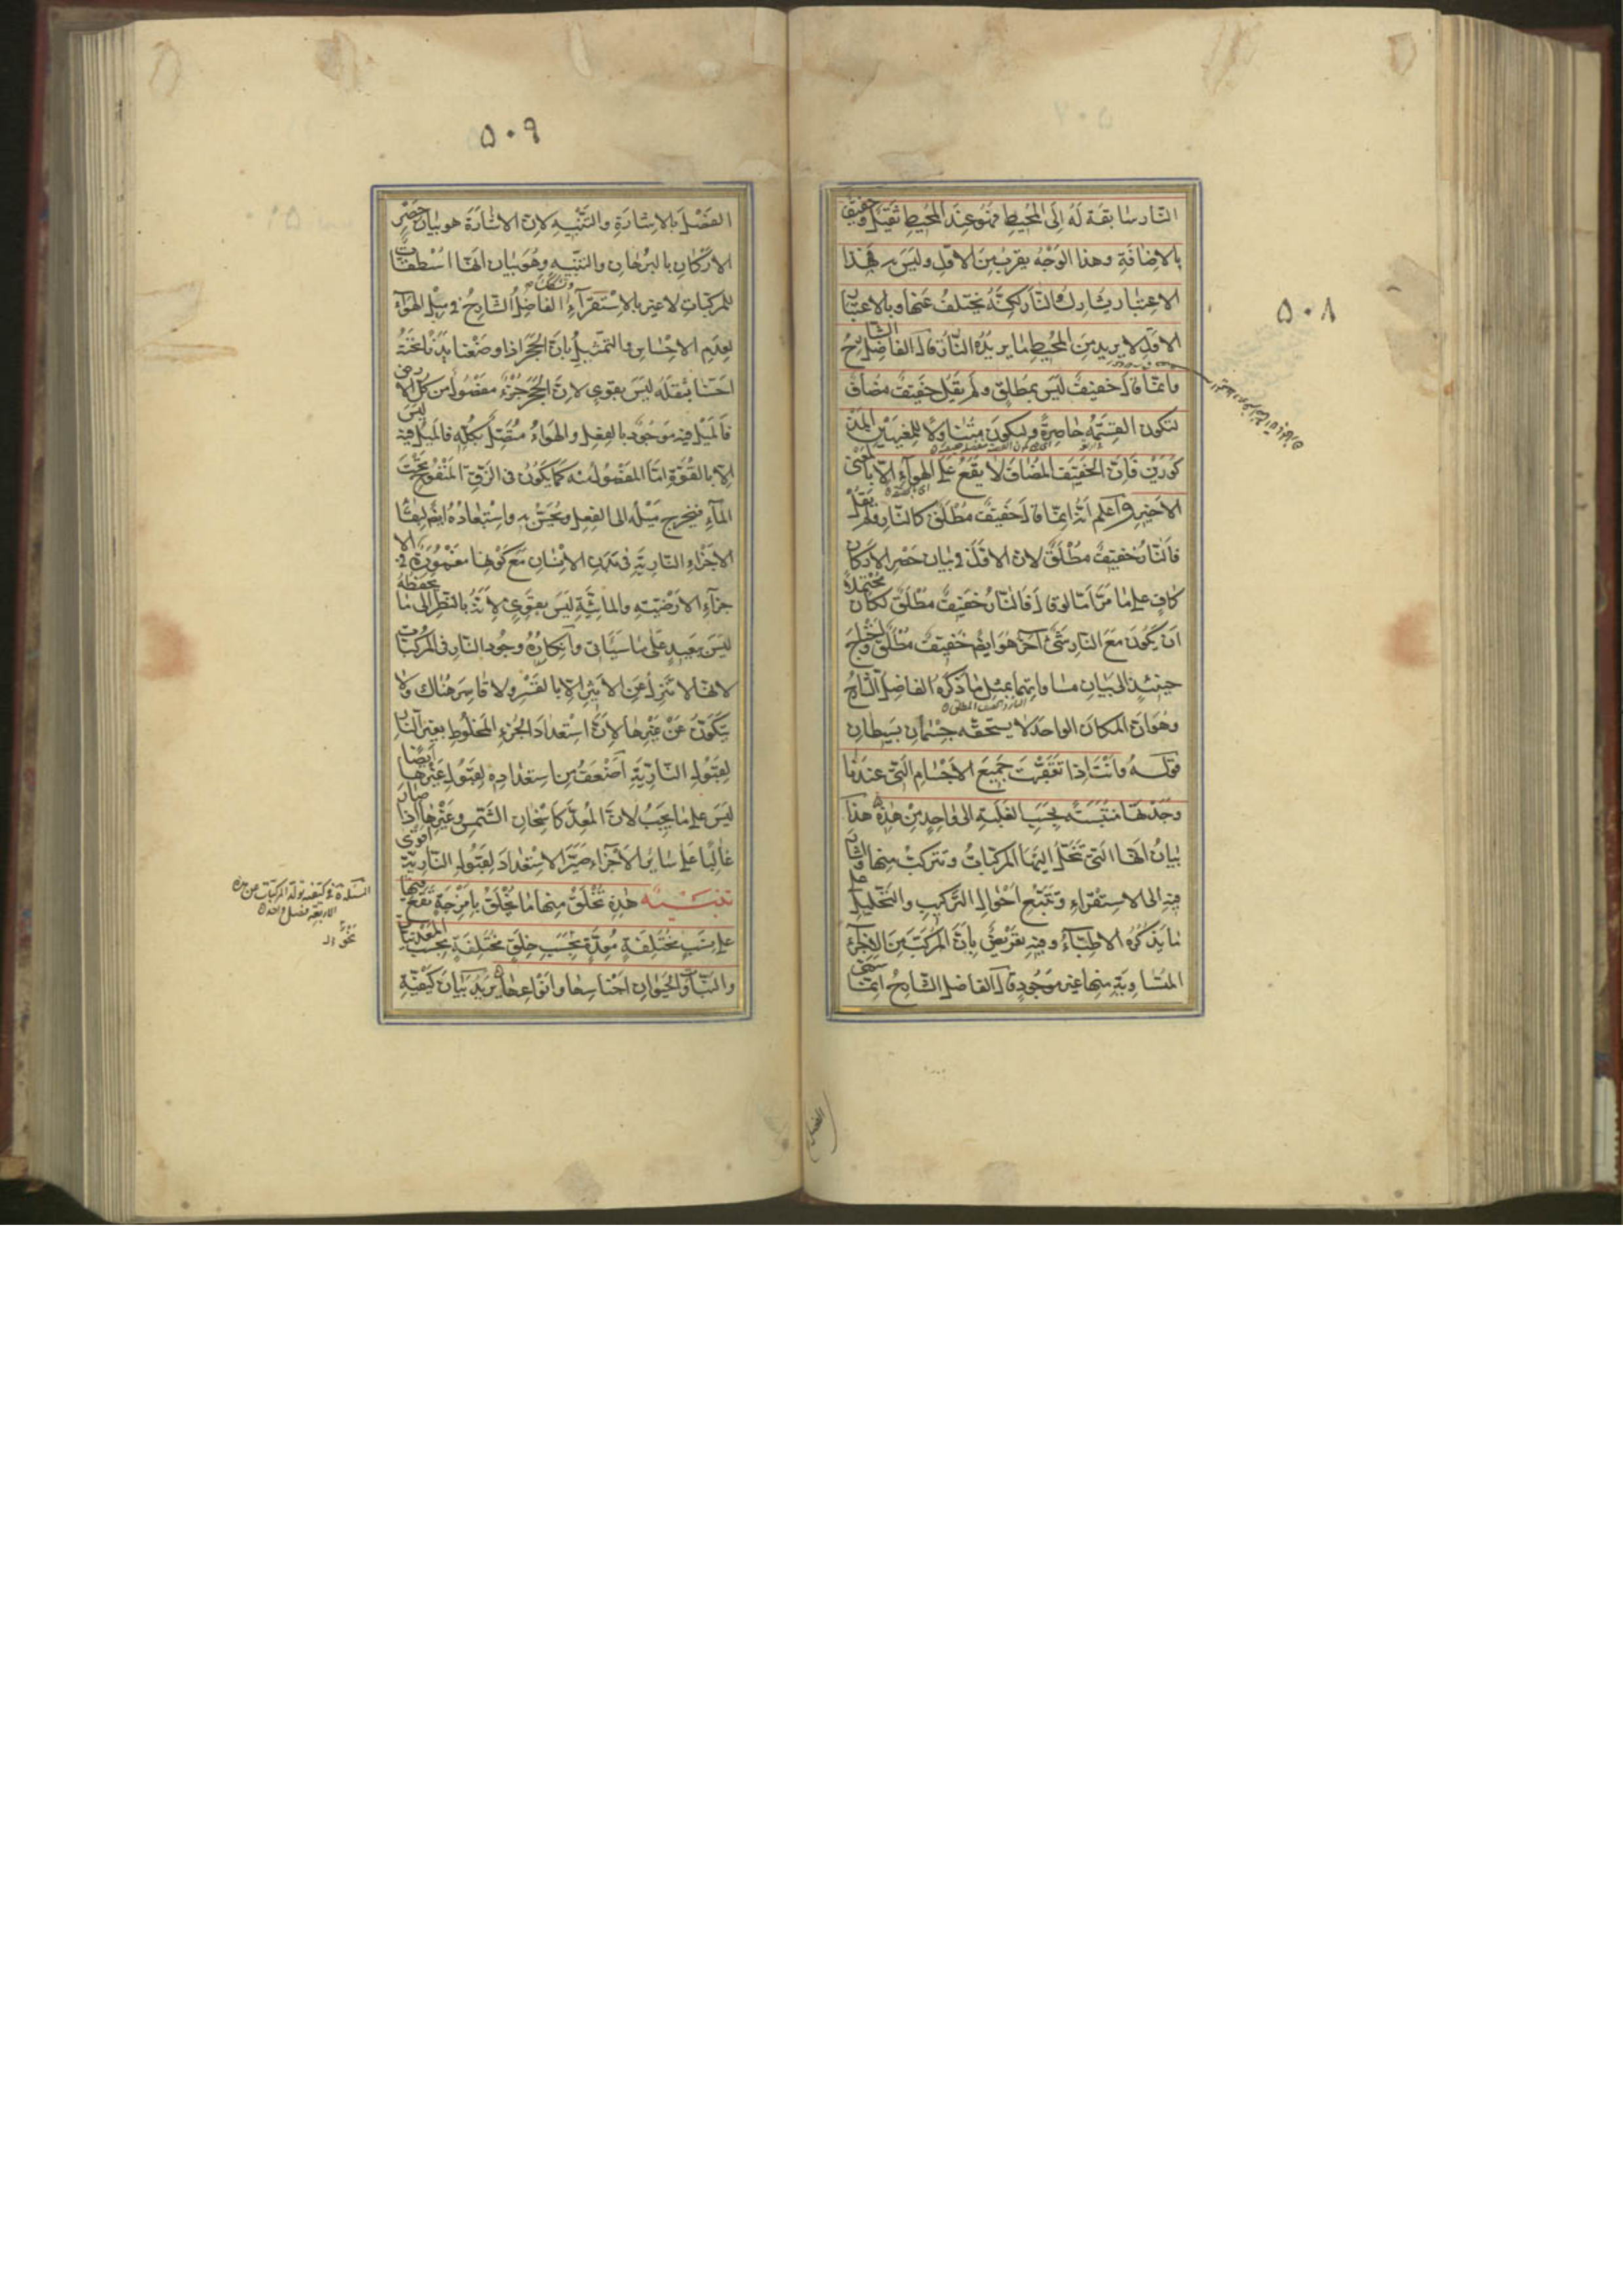 ٥٠٨
النار سابقة له الى المحيط فهو عند المحيط ثقيل وخفيف
بالاضافة وهذا الوجه يقرب من الاول وليس به فهذا
الاعتبار يشارك النار لكنه يختلف عنها وبالاعتبار
الاول لا يريد من المحيط ما يريده النار قال الفاضل الشارح
وانما قال خفيف ليس بمطلق ولم يقل خفيف مضاف
لتكون القسمة حاصرة وليكون متناولا للمعنيين المذ
كورين فان الخفيف المضاف لا يقع على الهواء الا بالمعنى
الاخير واعلم انه انما قال خفيف مطلق كالنار ولم يقل
فالنار خفيف مطلق لان الاول في بيان حصر الاركان
كاف على ما مر اما لو قال فالنار خفيف مطلق لكان محتملا
ان يكون مع النار شئ آخر هو ايضا خفيف مطلق ولاحتاج
حينئذ الى بيان مساواتهما بمثل ما ذكره الفاضل الشارح
وهو ان المكان الواحد لا يستحقه جسمان بسيطان
قوله وانت اذا تعقبت جميع الاجسام التي عندنا
وجدتها منتسبة بحسب الغلبة الى واحد من هذه هذا
بيان انها التي تتحلل اليها المركبات وتتركب منها واشار
فيه الى الاستقراء وتتبع احوال التركيب والتحليل على
ما يذكره الاطباء وفيه تعريض بان المركب من الاجزاء
المتساوية منها غير موجود قال الفاضل الشارح انما سمى
الفصل
٥٠٩
الفصل بالاشارة والتنبيه لان الاشارة هو بيان حصر
الاركان بالبرهان والتنبيه وهو بيان انها اسطقسات
للمركبات لا غير بالاستقراء الفاضل الشارح في ميل الهواء
لعدم الاحساس والتمثيل بان الحجر اذا وضعنا يدنا تحته
احسسنا بثقله ليس بقوي لان الحجر جزء مفصول من كل الارض
فالميل فيه موجود بالفعل والهواء متصل بكله فالميل فيه ليس
الا بالقوة اما المفصول منه كما يكون في الزق المنفوخ تحت
الماء فيخرج ميله الى الفعل ويحس به واستبعاده ايضا بقاء
الاجزاء النارية في بدن الانسان مع كونها مغمورة في الا
جزاء الارضية والمائية ليس بقوي لانه بالنظر الى ما يحفظه
ليس ببعيد على ما سيأتي وانكاره وجود النار في المركبات
لانها لا تنزل عن الاثير الا بالقسر ولا قاسر هناك ولا
يتكون عن غيرها لان استعداد الجزء المخلوط بغير النار
لقبول النارية اضعف من استعداده لقبول غيرها ايضا
ليس على ما يجب لان المعد كاسخان الشمس وغيرها اذا صار
غالبا على سائر الاجزاء صير الاستعداد لقبول النارية اقوى
تنبيه هذه تخلق منها ما تخلق بامزجة تقع فيها
على نسب مختلفة معدة بحسب خلق مختلفة بحسب المعدنيات
والنبات والحيوان اجناسها وانواعها يريد بيان كيفية